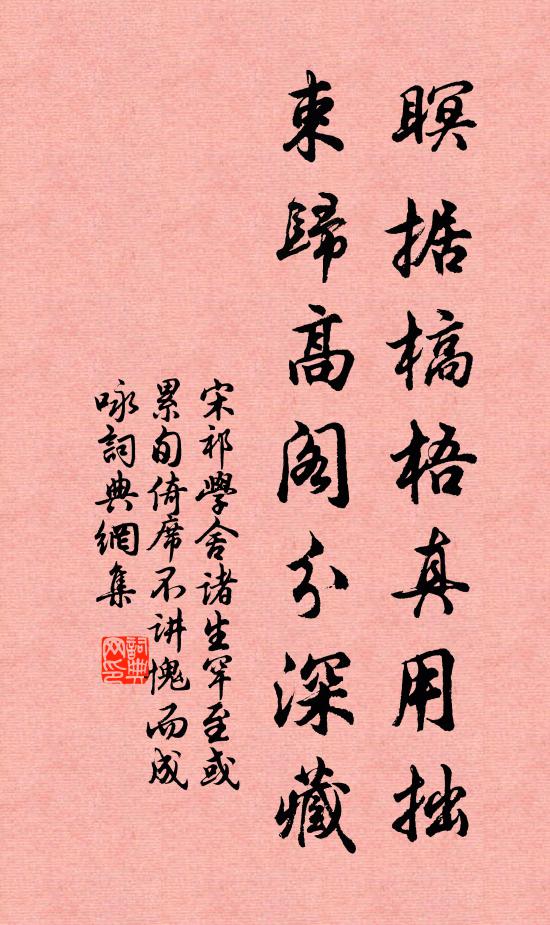 瞑据槁梧真用拙
束歸高阁分深藏
宋祁學舍諸生罕至或
累旬倚席不讲愧而成
咏詞典網集
詞典网印